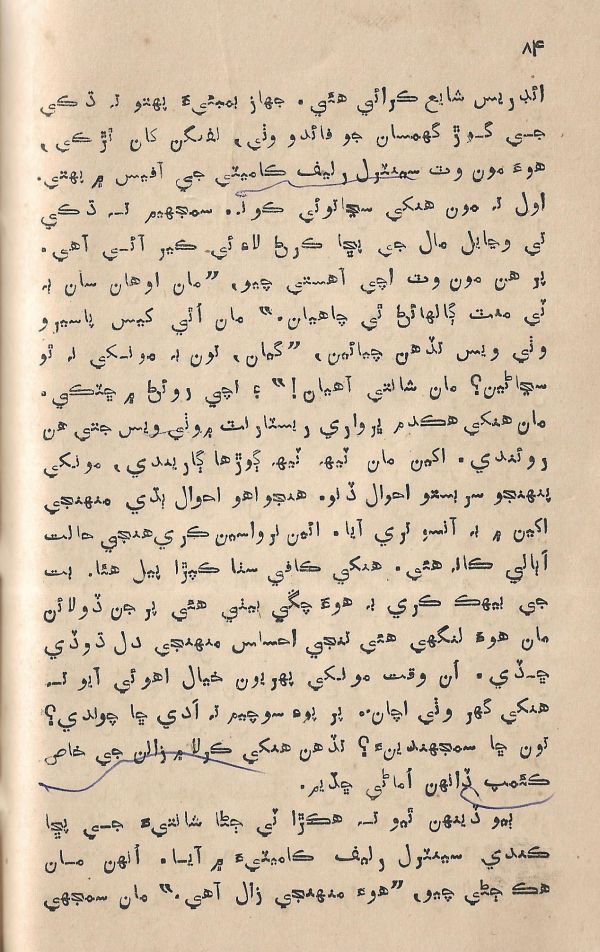 ۸۴
ائڊريس شايع ڪرائي هئي. جهاز بمبئيءَ پهتو تہ ڌڪي
جي گوڙ گهمسان جو فائدو وٺي، لفنگن کان لڙڪي،
هوءَ مون وٽ سينٽرل رليف ڪاميٽي جي آفيس ۾ پهتي.
اول تہ مون هنکي سڃاتوئي ڪونہ. سمجهيم تہ ڌڪي
تي وڃايل مال جي پڇا ڪرڻ لاءِ ئي ڪير آئي آهي.
پر هن مون وٽ اچي آهستي چيو، ”مان اوهان سان ٻہ
ٽي منٽ ڳالهائڻ ٿي چاهيان.“ مان اُٿي کيس پاسيرو
وٺي ويس تڏهن چيائين، ”گيان، تون بہ مونکي نہ ٿو
سڃاڻين؟ مان شانتي آهيان!“ ۽ اچي روئڻ ۾ ڇٽڪي.
مان هنکي هڪدم ڀرواري ريسٽارنٽ ۾ وٺي ويس جتي هن
روئندي. اکين مان ٽيهہ ٽيهہ ڳوڙها ڳاريندي، مونکي
پنهنجو سربستو احوال ڏنو. هنجو اهو احوال ٻڌي منهنجي
اکين ۾ بہ آنسو تري آيا. ائين نرواسين ڪري هنجي حالت
اُٻاڻي ڪانہ هئي. هنکي ڪافي سٺا ڪپڙا پيل هئا. بت
جي بيهڪ ڪري بہ هوءَ چڱي بيٺي هئي پر جن ڏولائن
مان هوءَ لنگهي هئي تنجي احساس منهنجي دل ڌوڏي
ڇڏي. اُن وقت مونکي پهريون خيال اهوئي آيو تہ
هنکي گهر وٺي اچان. پر پوءِ سوچيم تہ اَدي ڇا چوندي؟
تون ڇا سمجهندينءَ؟ تڏهن هنکي ڪرلا ۾ زالن جي خاص
ڪئمپ ڏانهن اُماڻي ڇڏيم.
ٻيو ڏينهن ٿيو تہ هڪڙا ٽي ڄڻا شانتيءَ جي پڇا
ڪندي سينٽرل رليف ڪاميٽيءَ ۾ آيا. اُنهن مان
هڪ ڄڻي چيو، ”هوءَ منهنجي زال آهي.“ مان سمجهي